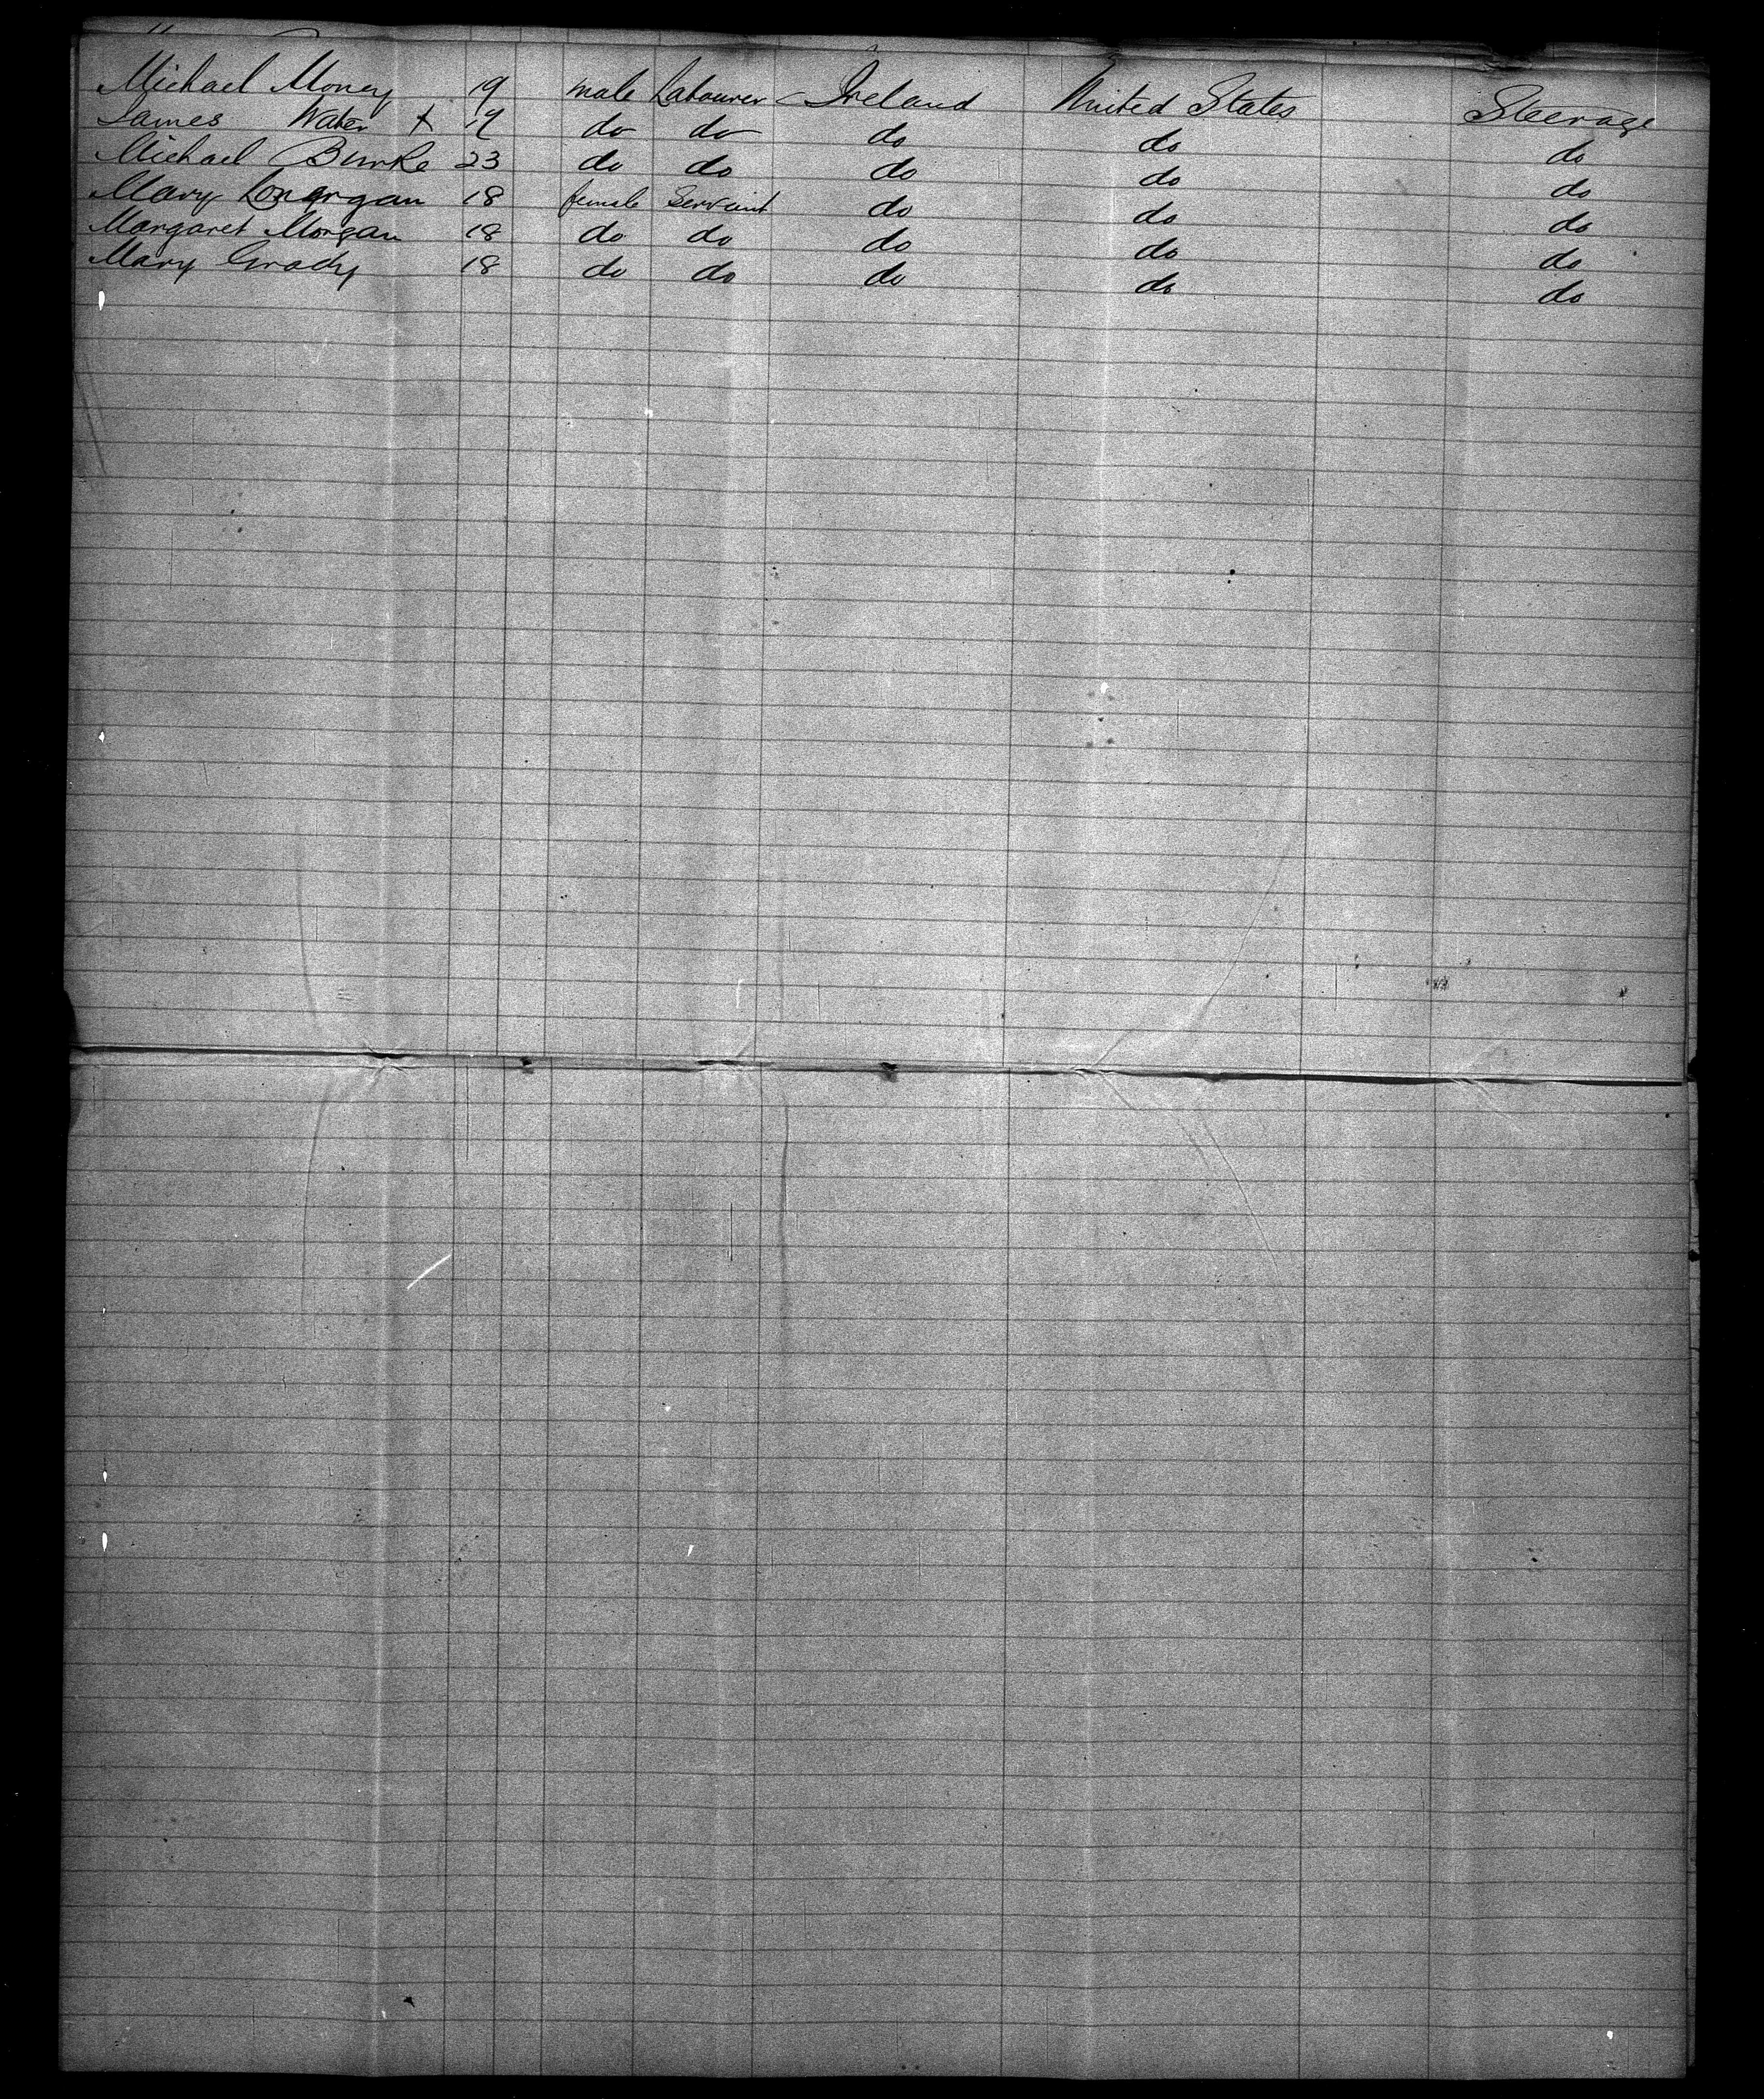 Michael Money 19 male Labourer Ireland United States Steerage
James Water x 19 do do do do do
Michael Burke 23 do do do do do
Mary Lonargan 18 female Servant do do do
Margaret Morgan 18 do do do do do
Mary Grady 18 do do do do do